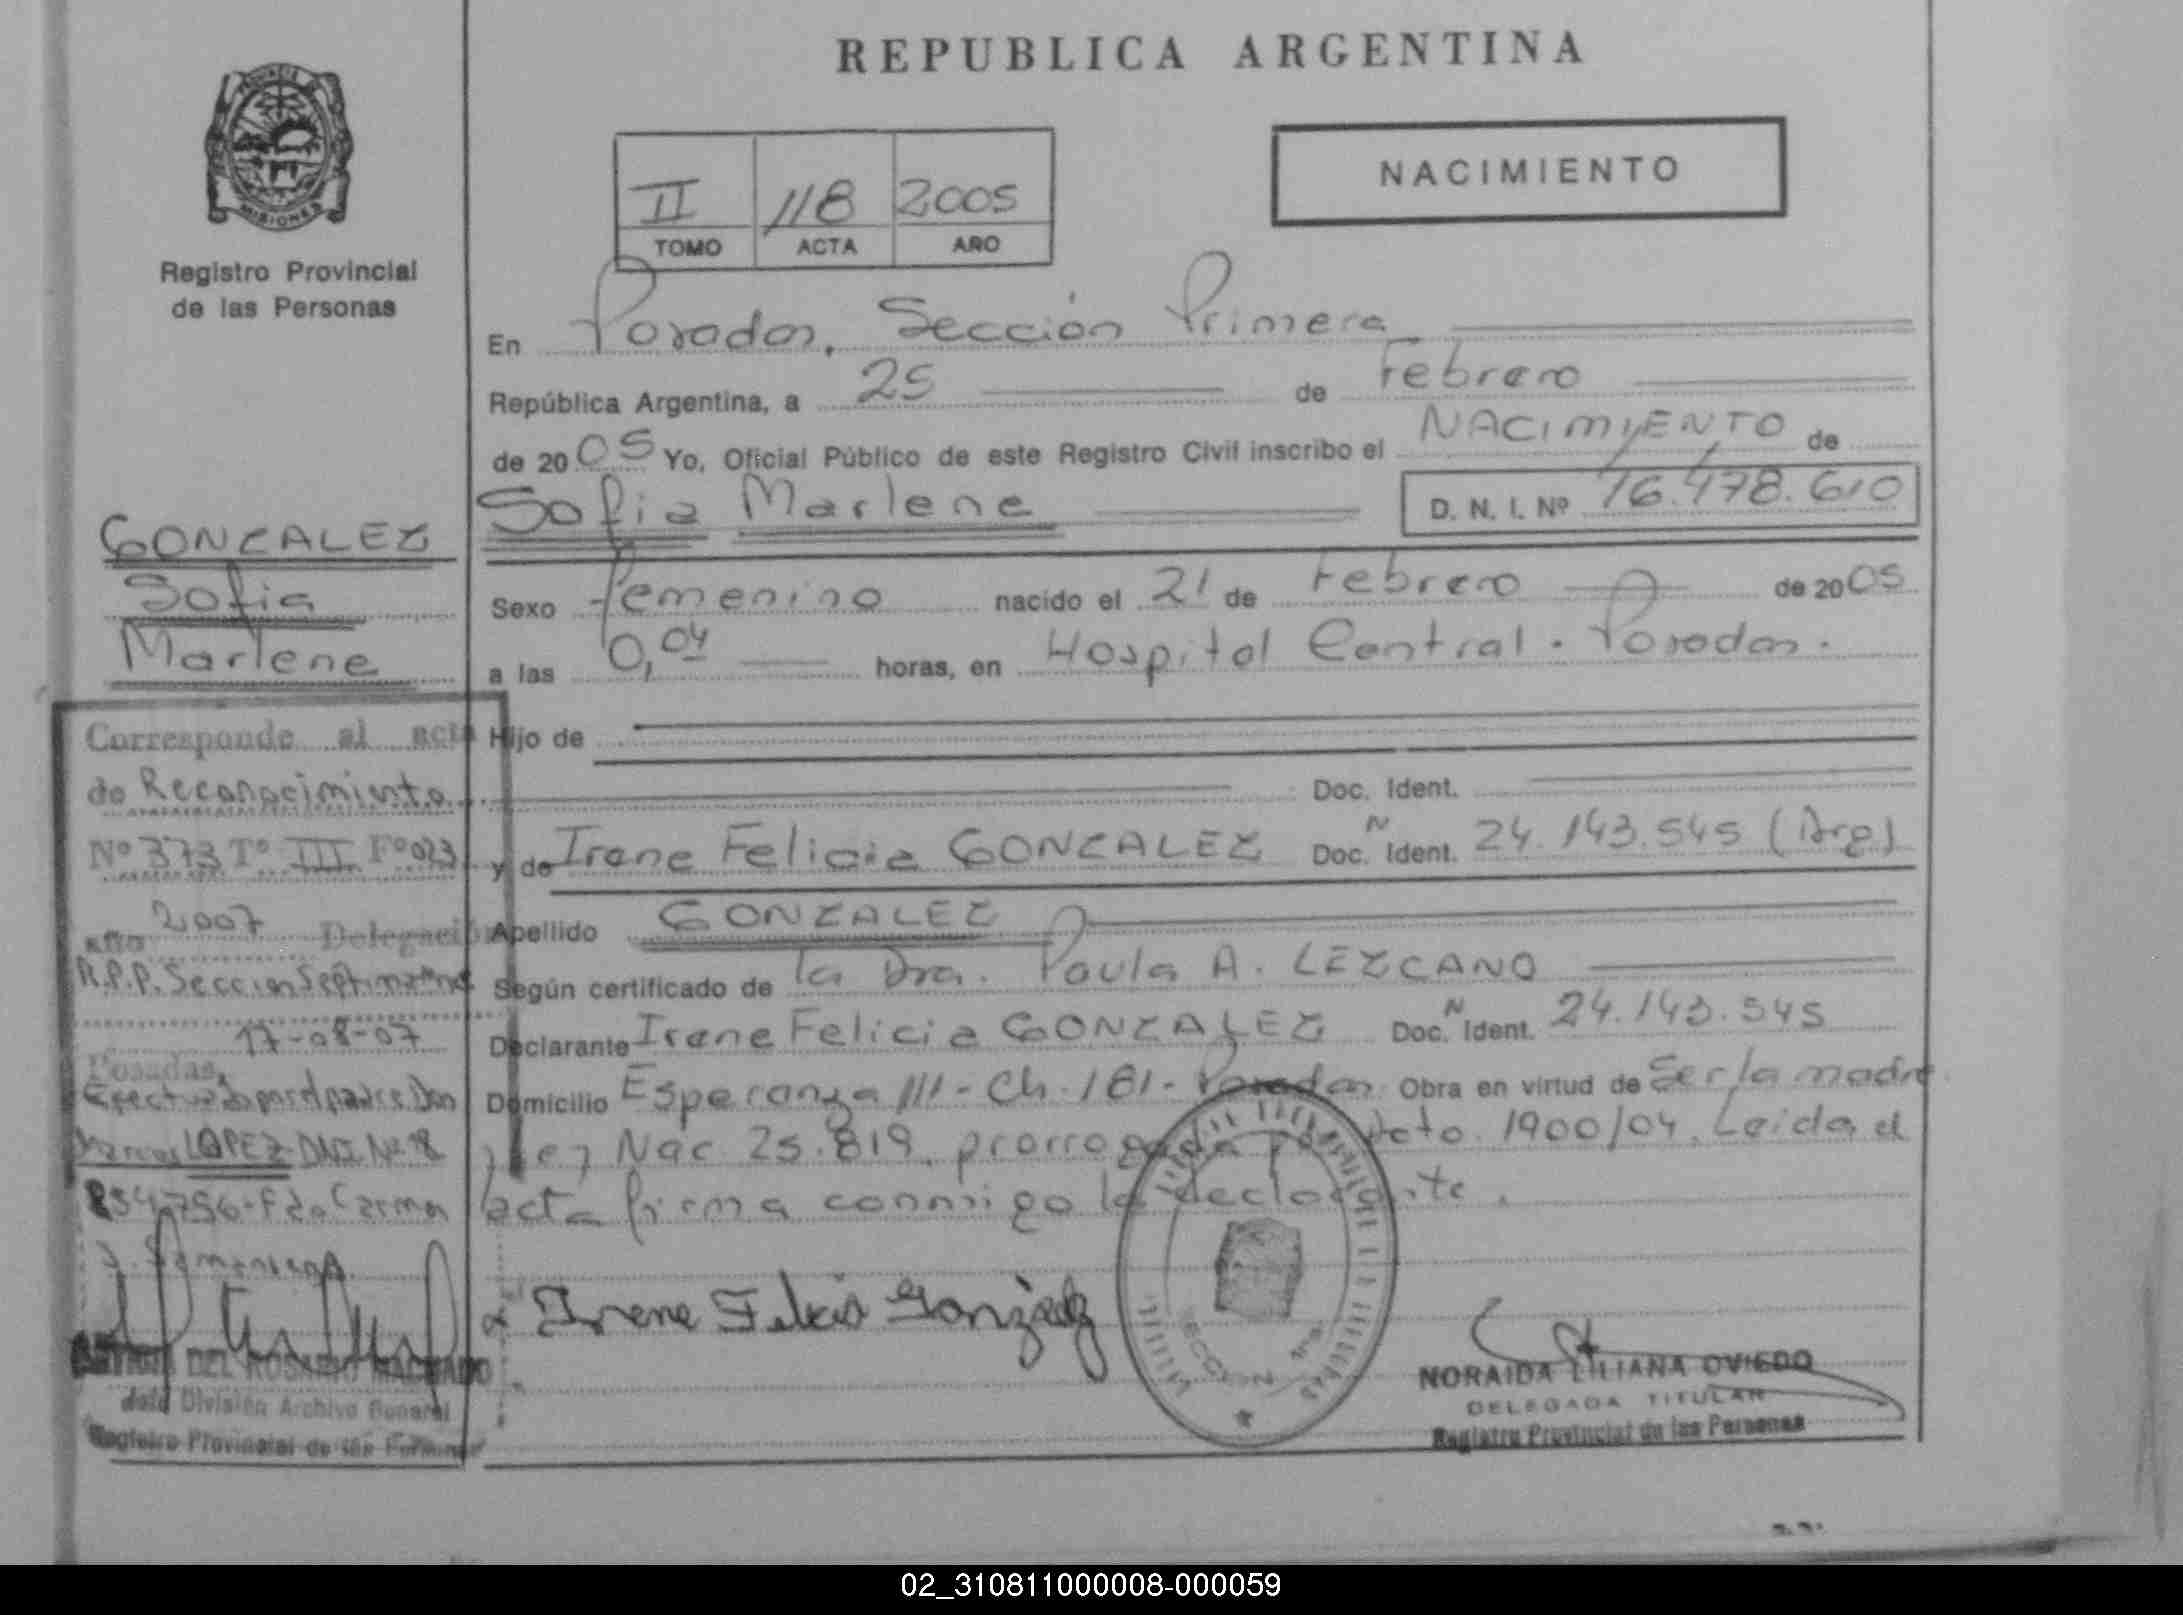 REPUBLICA ARGENTINA
NACIMIENTO
PROVINCIA
MISIONES
Registro Provincial
de las Personas
II 118 2005
TOMO ACTA AÑO
En Posadas, Sección Primera
República Argentina, a 25 de Febrero
de 2005 Yo, Oficial Público de este Registro Civil inscribo el NACIMIENTO de
Sofia Marlene D. N. I. Nº 16.478.610
Sexo femenino nacido el 21 de Febrero de 2005
a las 0,04 horas, en Hospital Central - Posadas.
Hijo de
Doc. Ident.
y de Irene Felicia GONZALEZ Doc. N Ident. 24.143.545 (Arg)
Apellido GONZALEZ
Según certificado de la Dra. Paula A. LEZCANO
Declarante Irene Felicia GONZALEZ Doc. N Ident. 24.143.545
Domicilio Esperanza III - Ch. 181 - Posadas Obra en virtud de Ser la madre
Ley Nac 25.819, prorrogada Dcto. 1900/04. Leida el
acta firma conmigo la declarante.
Irene Felicia Gonzalez
SECCION
NORAIDA LILIANA OVIEDO
DELEGADA TITULAR
Registro Provincial de las Personas
GONZALEZ
Sofia
Marlene
Corresponde al acta
de Reconocimiento
Nº 373 Tº III Fº 023
Año 2007 Delegación
R.P.P. Seccion Septima
17-08-07
Posadas,
Efectuado por el padre Don
Marcos LOPEZ DNI Nº 18
854756
DEL ROSARIO MACHADO
División Archivo General
Registro Provincial de las Personas
02_310811000008-000059